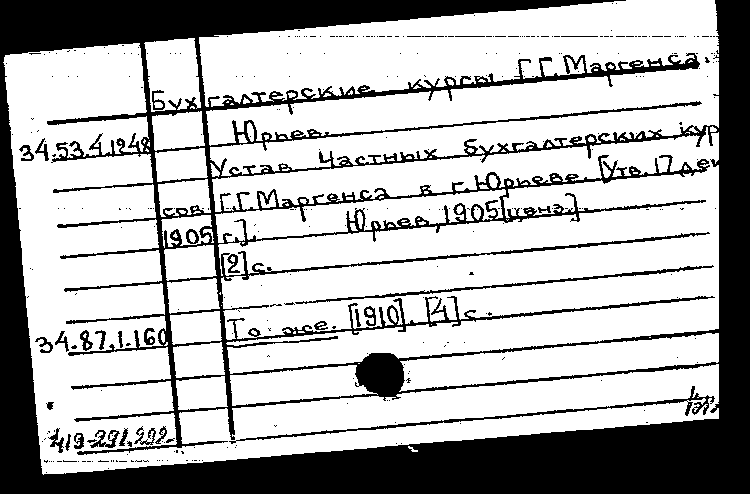 Бухгалтерские курсы Г.Г. Маргенса.
34.53.4.1248 Юрьев.
Устав частных бухгалтерских кур
сов Г.Г. Маргенса в г. Юрьеве. [Утв. 17 дек
1905 г.]. Юрьев, 1905 [ценз.].
[2] с.
34.87.1.160 То же. [1910]. [4] с.
419-291.222